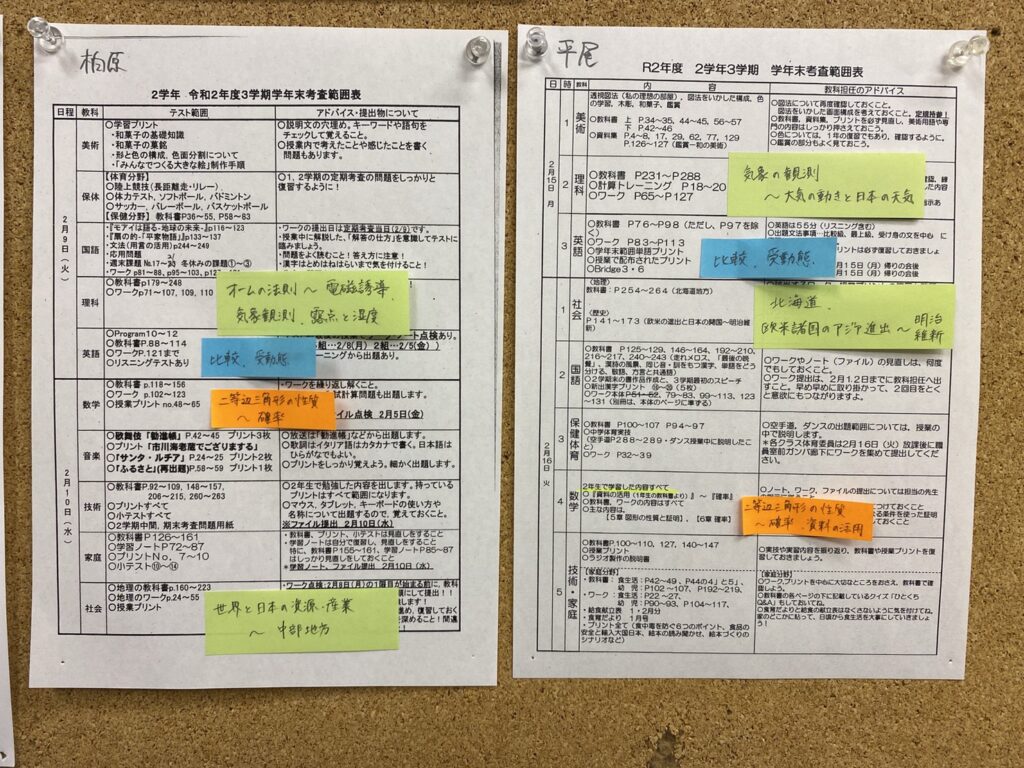 柏原
2学年 令和2年度3学期学年末考査範囲表
日程 教科 テスト範囲 アドバイス・提出物について
2月9日(火)
美術
○学習プリント
・和菓子の基礎知識
・和菓子の菓銘
・形と色の構成、色面分割について
・「みんなでつくる大きな絵」制作手順
○説明文の穴埋め。キーワードや語句を
チェックして覚えること。
○授業内で考えたことや感じたことを書く
問題もあります。
保体
【体育分野】
○陸上競技(長距離走・リレー)
○体力テスト、ソフトボール、バドミントン
○サッカー、バレーボール、バスケットボール
【保健分野】 教科書P36~55、P58~83
○1、2学期の定期考査の問題をしっかりと
復習するように!
国語
・『モアイは語る-地球の未来-』p116~123
・『扇の的-「平家物語」』p133~137
・文法(用言の活用)p244~249
・応用問題
・週末課題 冬休みの課題①~③
・ワークp81~88、p95~103、
・ワークの提出日は定期考査当日(2/9)です。
・授業中に解説した、「解答の仕方」を意識してテストに
臨みましょう。
・問題をよく読むこと!答え方に注意!
・漢字はとめはねはらいまで気を付けること!
理科
○教科書p179~248
○ワークp71~107、109、110
オームの法則~電磁誘導、
気象観測、露点と湿度
英語
○Program10~12
○教科書P.88~114
○ワークP.121まで
○リスニングテストあり
ート点検あり。
組…2/8(月) 2組…2/5(金))
ーニングから出題あり。
比較、受動態
数学
○教科書 p.118~156
○ワーク p.102~123
○授業プリント no.48~65
・ワークを繰り返し解くこと。
試計算問題も出ます。
イル点検 2月5日(金)
二等辺三角形の性質
~確率
2月10日(水)
音楽
○歌舞伎「勧進帳」P.42~45 プリント3枚
○プリント「市川海老蔵でございまする」
○「サンタ・ルチア」P.24~25 プリント2枚
○「ふるさと」(再出題)P.58~59 プリント1枚
○放送は「勧進帳」などから出題します。
○歌詞はイタリア語はカタカナで書く。日本語は
ひらがなでもよい。
○プリントをしっかり覚えよう。細かく出題します。
技術
○教科書P.92~109、148~157、
206~215、260~263
○プリントすべて
○小テストすべて
○2学期中間、期末考査問題用紙
○2年生で勉強した内容を出します。持っている
プリントはすべて範囲になります。
○マウス、タブレット、キーボードの使い方や
名称について出題するので、覚えておくこと。
※ファイル提出 2月10日(水)
家庭
○教科書P126~161
○学習ノートP72~87
○プリントNo.7~10
○小テスト⑩~⑭
・教科書、プリント、小テストは見直しをすること
・学習ノートは自分で復習し、見直しをすること
特に、教科書P155~161、学習ノートP85~87
はしっかり見直しをしておくこと
※学習ノート、ファイル提出 2月10日(水)
社会
○地理の教科書p.160~223
○地理のワークp.24~55
○授業プリント
・ワーク点検:2月8日(月)の1限目が始まる前に、教科
世界と日本の資源・産業
~中部地方
平尾
R2年度 2学年3学期 学年末考査範囲表
日 時 教科 内容 教科担任のアドバイス
2月15日 月
1 美術
透視図法(私の理想の部屋)、図法をいかした構成、色
の学習、木彫、和菓子、鑑賞
○教科書 上 P34~35、44~45、56~57
下 P42~46
○資料集 P4~8、17、29、62、77、129
P.126~127(鑑賞一和の美術)
○図法について再度確認しておくこと。
図法をいかした画面構成を考えておくこと。定規持参!
○教科書、資料集、プリントを必ず見直し、美術用語や専
門の内容はしっかり押さえておこう。
○色については、1年の復習でもあり、確認するように。
○鑑賞の部分もよく見ておこう。
2 理科
○教科書 P231~P288
○計算トレーニング P18~20
○ワーク P65~P127
気象の観測
~大気の動きと日本の天気
3 英語
○教科書 P76~P98(ただし、P97を除く)
○ワーク P83~P113
○学年末範囲単語プリント
○授業で配布されたプリント
○Bridge3・6
○英語は55分(リスニング含む)
○出題文法事項…比較級、最上級、受け身の文を中心に
リントは必ず復習しておきましょ
月15日(月)帰りの会後
月15日(月)帰りの会後
比較、受動態、
1 社会
(地理)
教科書:P254~264(北海道地方)
(歴史)
P141~173(欧米の進出と日本の開国~明治維新)
北海道、
欧米諸国のアジア進出~明治
維新
2月16日 火
2 国語
○教科書 P125~129、146~164、192~210、
216~217、240~243(走れメロス、「最後の晩
餐」、漢語の風景、同じ音・訓をもつ漢字、単語をどう
分ける、敬語、方言と共通語)
○2学期末の書作品作成と、3学期最初のスピーチ
○新出漢字プリント
○ワーク本体P51~62、79~83、99~113、123
~131(別冊は、本体のページに準ずる)
○ワークやノート(ファイル)の見直しは、何度
でもしておくこと。
○ワーク提出は、2月12日までに教科担任へ出
すこと。早め早めに取り掛かって、2回目をとく
とく意欲にもつながりますよ。
3 保健体育
○教科書 P100~107 P94~97
○中学体育実技
(空手道P288~289・ダンス授業中に説明したこと)
○ワーク P32~39
○空手道、ダンスの出題範囲については、授業の
中で説明します。
＊各クラス体育委員は2月16日(火)放課後に職
員室前ガンバ廊下にワークを集めて提出してください。
4 数学
2年生で学習した内容すべて
○『資料の活用(1年生の教科書より)』~『確率』
○教科書、ワークの内容はすべて
○主な内容は、
【5章 図形の性質と証明】、【6章 確率】
○ノート、ワーク、ファイルの提出については担当の先生
二等辺三角形の性質
~確率、資料の活用
5 技術・家庭
○教科書P.100~110、127、140~147
○授業プリント
○ラジオ製作の説明書
○実技や実習内容を振り返り、教科書や授業プリントを復習
しておきましょう。
【家庭分野】
・教科書:食生活:P42~49、P44の4」と5」、
幼児:P102~107、P192~219、
・ワーク:食生活:P22~27、
幼児:P90~93、P104~117、
・給食献立表 1・2月分
・食育だより 1月号
・プリント全て(食中毒を防ぐ6つのポイント、食品の
安全と輸入大国日本、絵本の読み聞かせ、絵本づくりの
シナリオなど)
【家庭分野】
○ワークプリントを中心に大切なところをおさえ、教科書で確
認しよう。
○教科書の各ページの下に記載しているクイズ「ひとくち
Q&A」もしておいてね。
○食育だよりと給食の献立表はなくさないように気を付けてね。